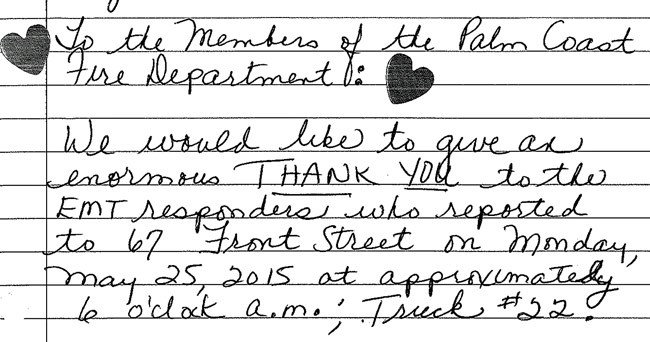 To the Members of the Palm Coast
Fire Department:
We would like to give an
enormous THANK YOU to the
EMT responders who reported
to 67 Front Street on Monday,
May 25, 2015 at approximately
6 o'clock a.m.; Truck #22.